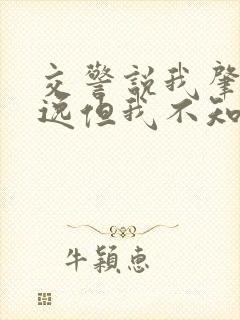 交警說我肇
逃但我不知
牛穎惠